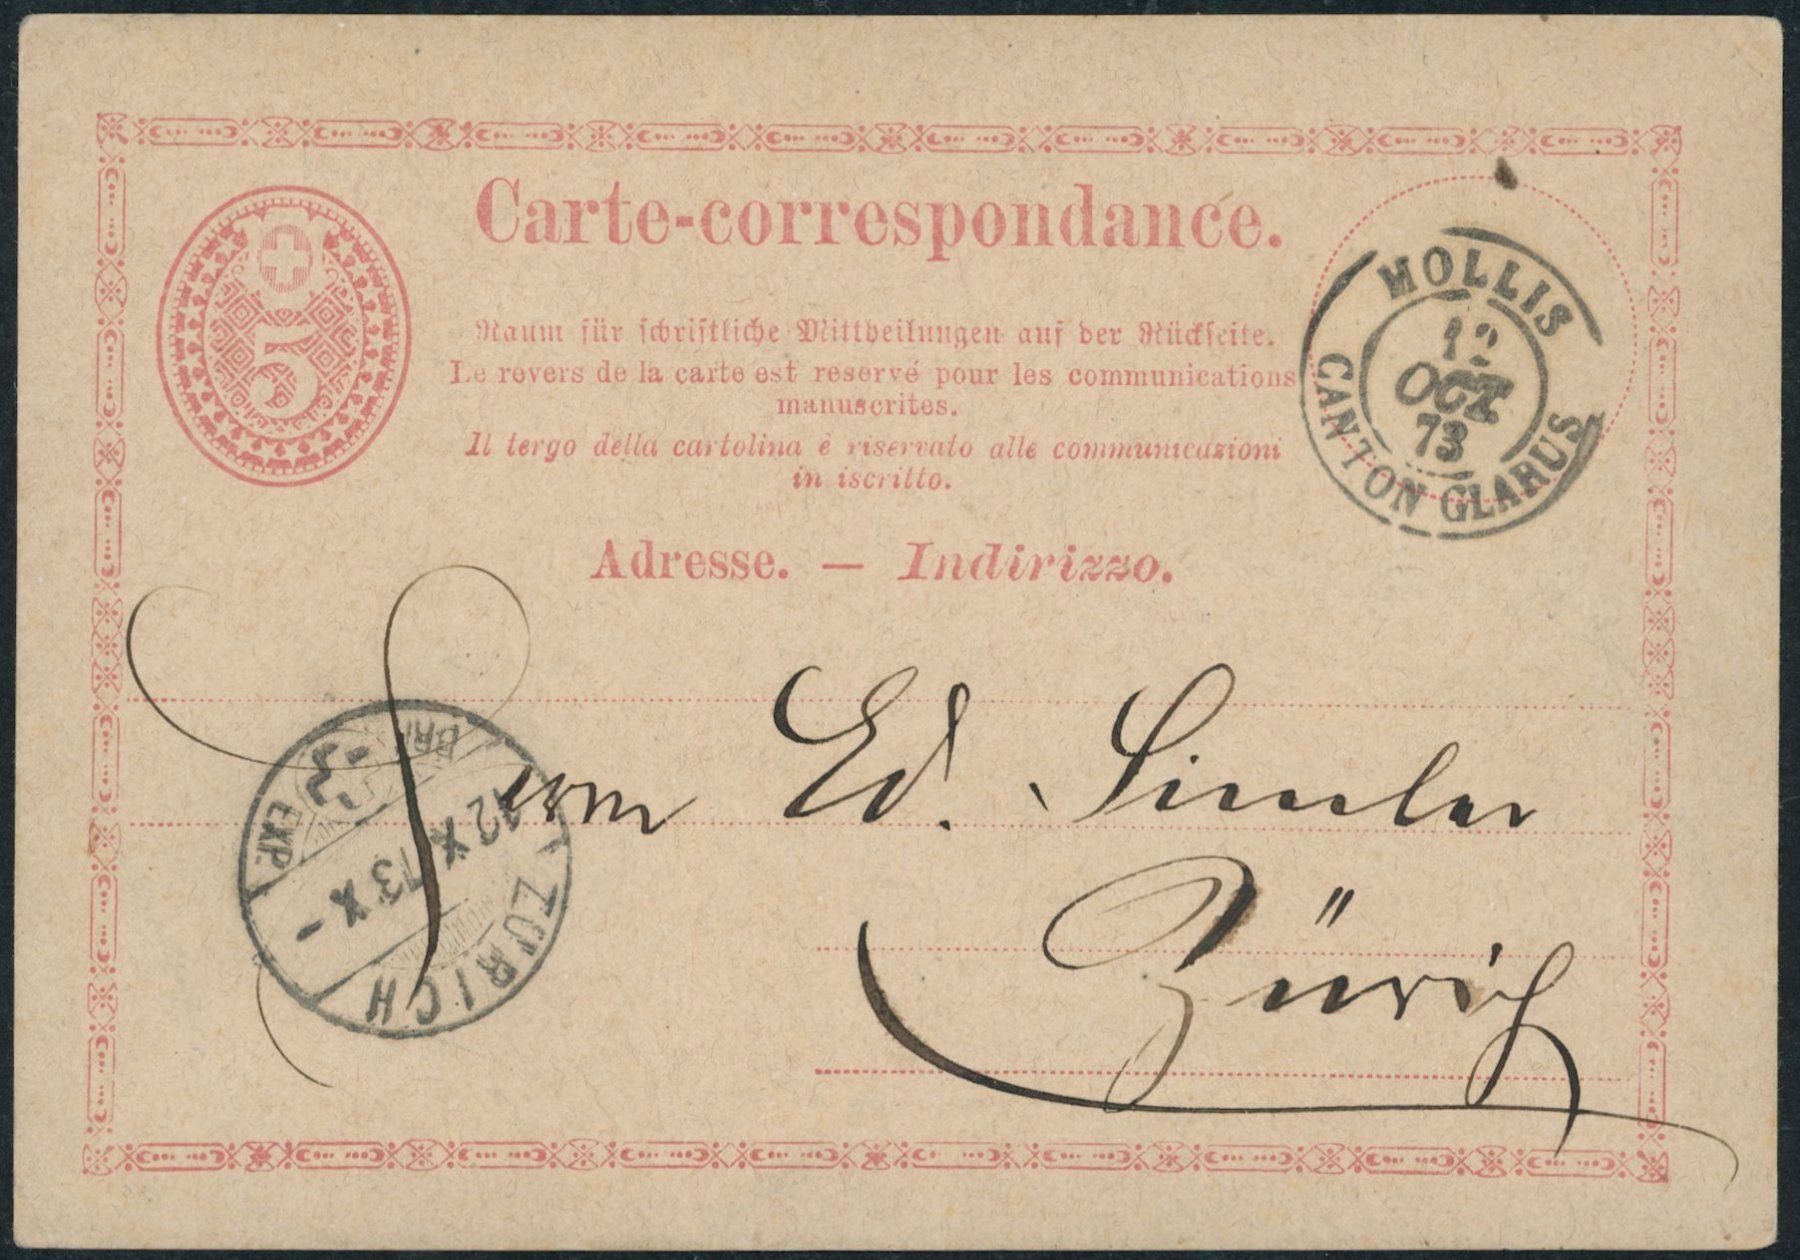 Carte-correspondance.
5
Raum für schriftliche Mittheilungen auf der Rückseite.
Le revers de la carte est reservé pour les communications
manuscrites.
Il tergo della cartolina è riservato alle communicazioni
in iscritto.
MOLLIS
12
OCT
73
CANTON GLARUS
Adresse. — Indirizzo.
Herrn Ed. Simler
Zürich
BRF. EXP.
12 X 73 X -
ZÜRICH